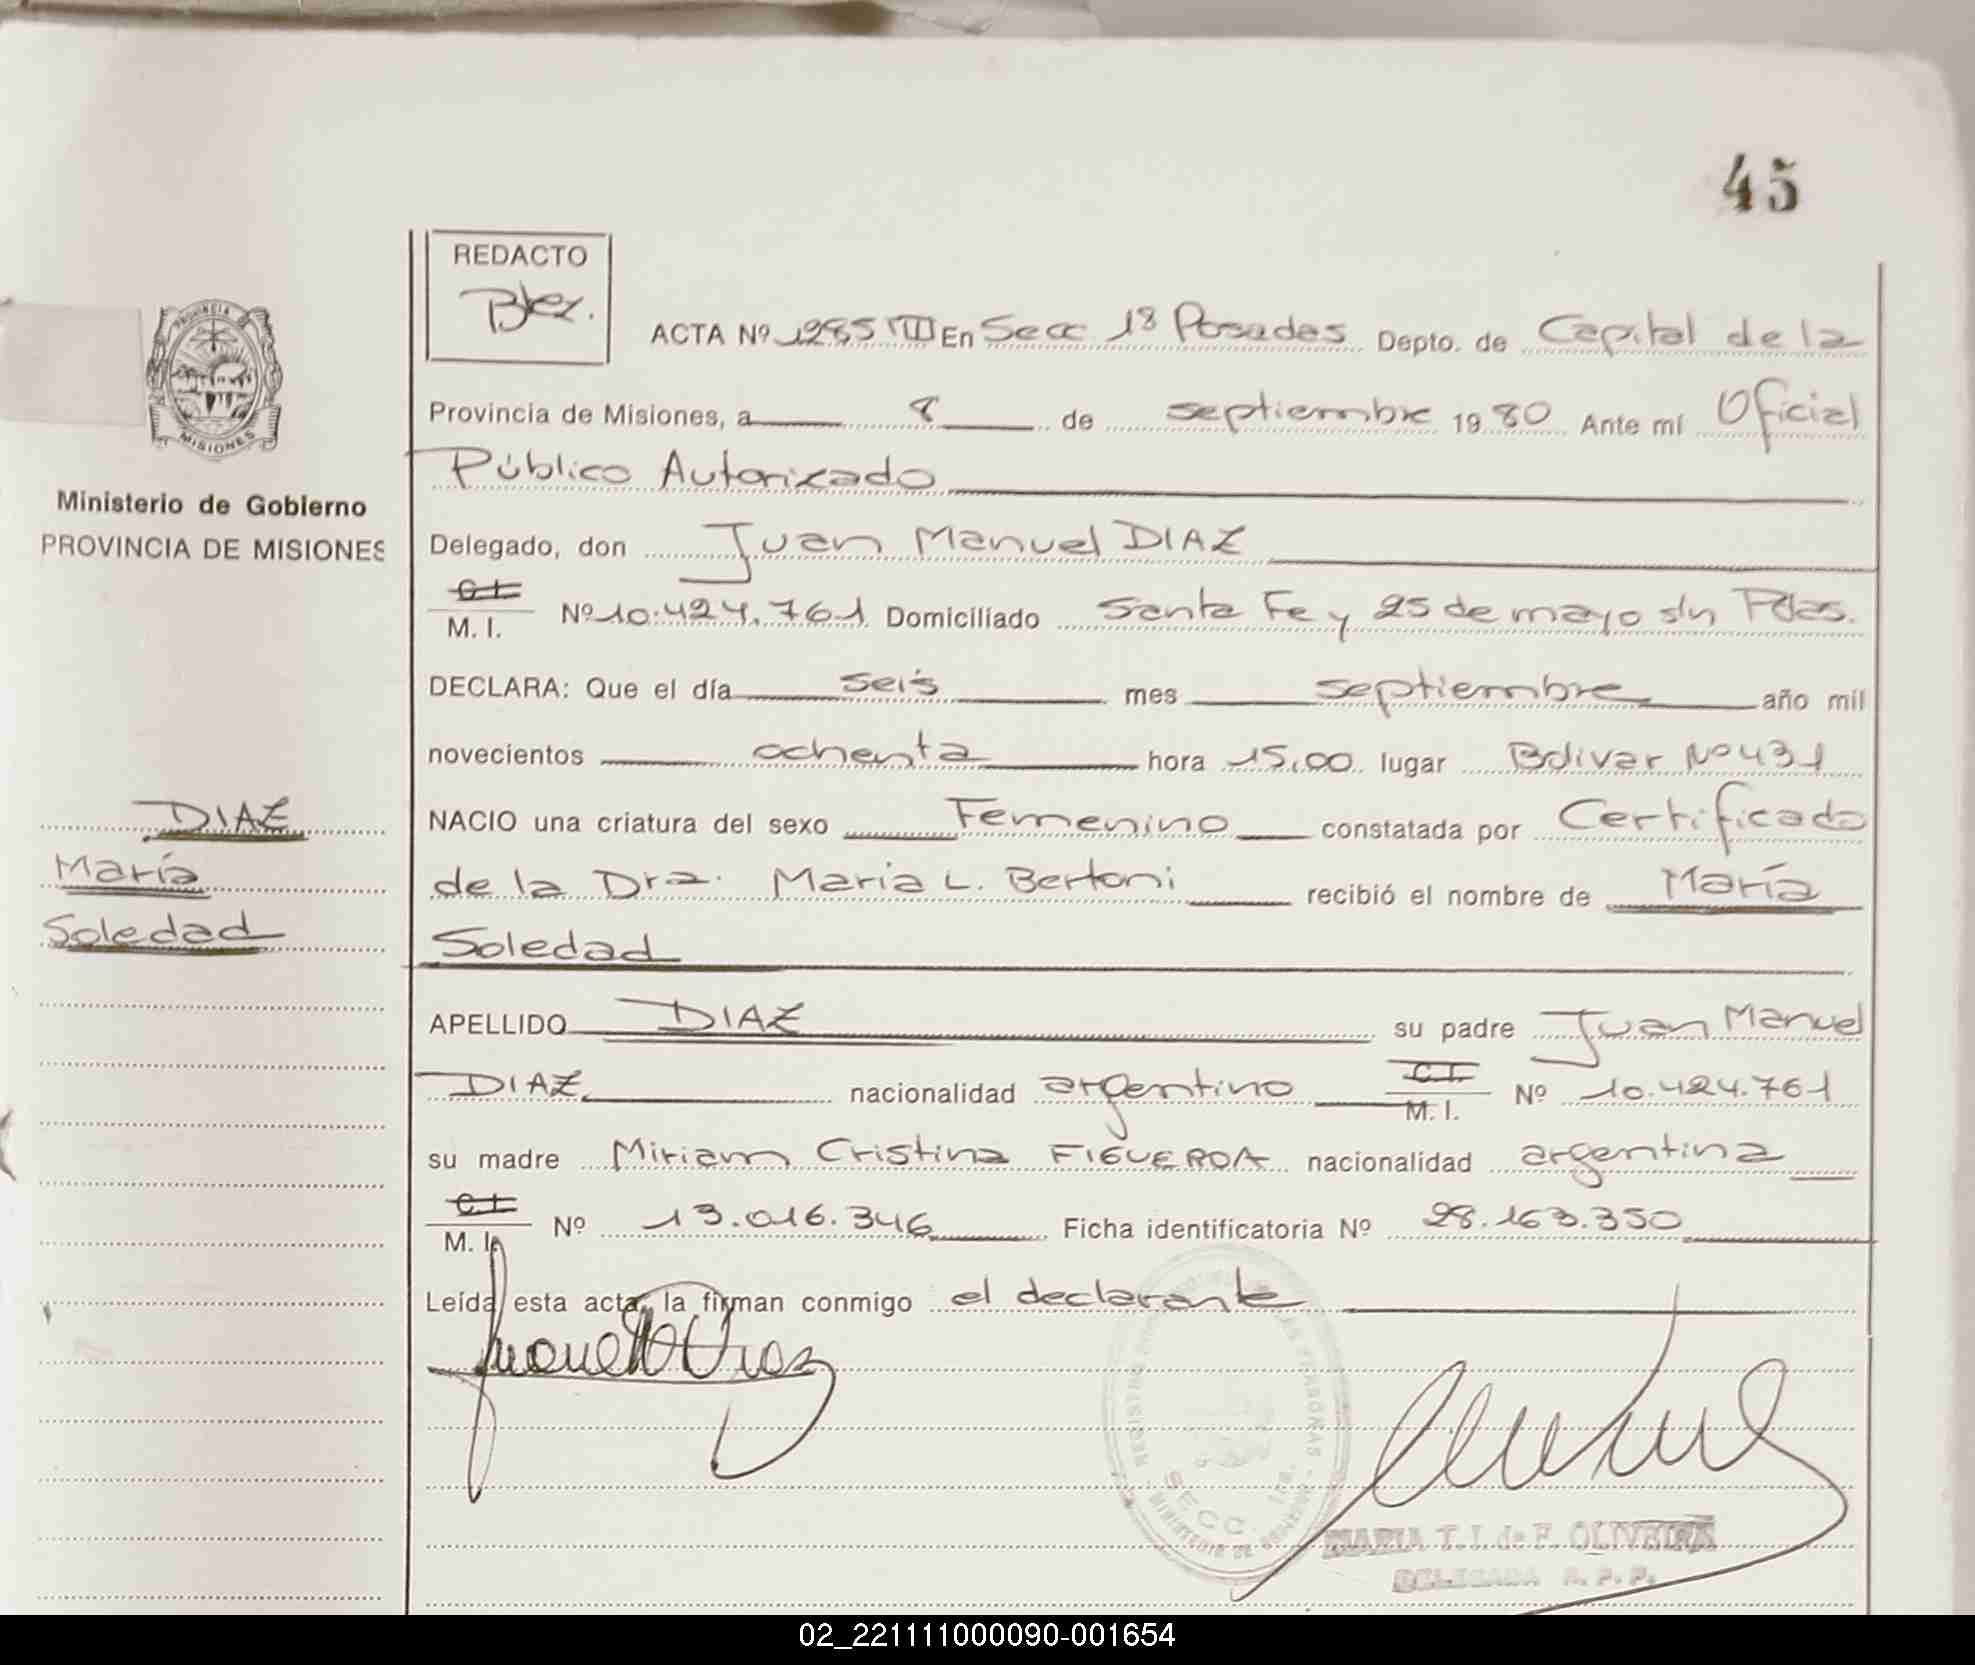 45
REDACTO
Bez.
ACTA Nº 1285 III En Secc 1ª Posadas Depto. de Capital de la
Provincia de Misiones, a 8 de septiembre 1980 Ante mí Oficial
Público Autorizado
Delegado, don Juan Manuel DIAZ
C.I.
M. I. Nº 10.424.761 Domiciliado Santa Fe y 25 de mayo s/n Pdas.
DECLARA: Que el día seis mes septiembre año mil
novecientos ochenta hora 15,00 lugar Bolivar Nº 431
NACIO una criatura del sexo Femenino constatada por Certificado
de la Dra. Maria L. Bertoni recibió el nombre de María
Soledad
APELLIDO DIAZ su padre Juan Manuel
DIAZ nacionalidad argentino C.I. M. I. Nº 10.424.761
su madre Miriam Cristina FIGUEROA nacionalidad argentina
C.I.
M. I. Nº 13.016.346 Ficha identificatoria Nº 28.163.350
Leída esta acta, la firman conmigo el declarante
MARIA T. I. de F. OLIVEIRA
DELEGADA R. P. P.
PROVINCIA
MISIONES
Ministerio de Gobierno
PROVINCIA DE MISIONES
DIAZ
María
Soledad
SECC
02_221111000090-001654